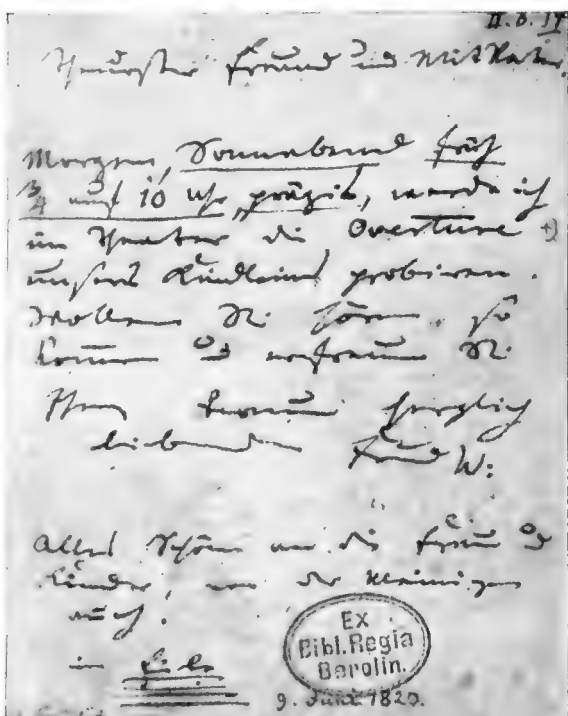 II. 8. 17
Theurster Freund und Mit Vater.
Morgen, Sonnabend früh
3/4 auf 10 Uhr, präzis, werde ich
im Theater die Overture +)
unsers Kindleins probiren.
Wollen Sie hören, so
kommen u erfreuen Sie
Ihren treuen herzlich
liebenden Freund W:
Alles Schöne an die Frau u
Kinder, von der Meinigen
auch.
in Eile
Ex
Bibl. Regia
Berolin.
9. Juni 1820.